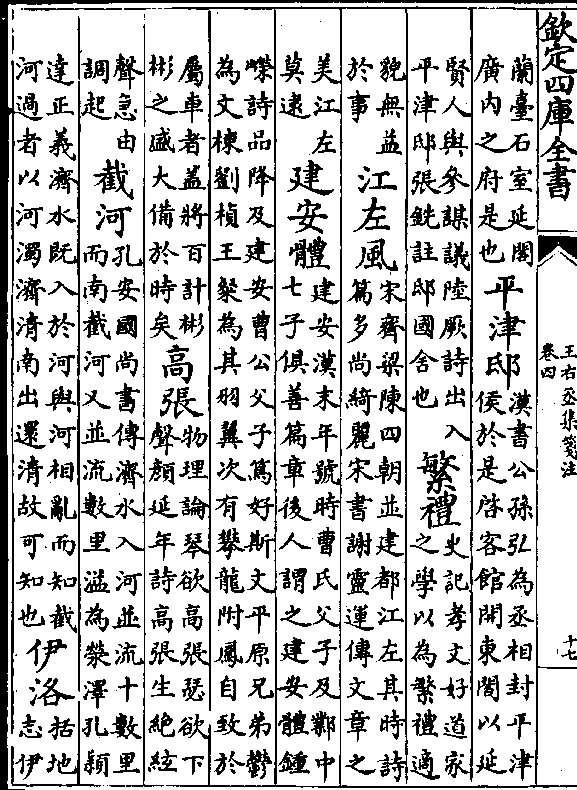 欽定四庫全書
王右丞集箋注
卷四
十七
蘭臺石室延閣
廣内之府是也
平津邸
漢書公孫弘為丞相封平津
侯於是啓客館開東閤以延
賢人與參謀議陸厥詩出入
平津邸張銑註邸國舍也
繁禮
史記孝文好道家
之學以為繁禮適
貌無益
於事
江左風
宋齊梁陳四朝並建都江左其時詩
篇多尚綺麗宋書謝靈運傳文章之
美江左
莫逮
建安體
建安漢末年號時曹氏父子及鄴中
七子俱善篇章後人謂之建安體鍾
嶸詩品降及建安曹公父子篤好斯文平原兄弟鬱
為文棟劉楨王粲為其羽翼次有攀龍附鳳自致於
屬車者蓋將百計彬
彬之盛大備於時矣
高張
物理論琴欲高張瑟欲下
聲顔延年詩高張生絶絃
聲急由
調起
截河
孔安國尚書傳濟水入河並流十數里
而南截河又並流數里溢為滎澤孔穎
達正義濟水既入於河與河相亂而知截
河過者以河濁濟清南出還清故可知也
伊洛
括地
志伊